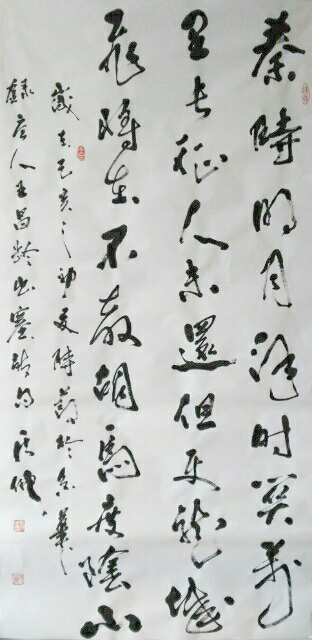 秦時明月漢时関萬
里长征人未還但使龍城
飛將在不教胡馬度陰山
歲在己亥之初夏時節於
錄唐人王昌龄出塞詩